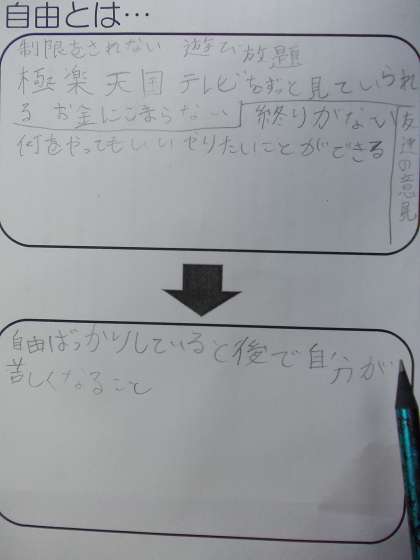 自由とは…
制限をされない 遊び放題
極楽 天国 テレビをずっと見ていられ
る お金にこまらない 終りがない
何をやってもいい やりたいことができる
友達の意見
自由ばっかりしていると後で自分が
苦しくなること